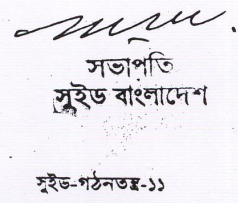 সভাপতি
সুইড বাংলাদেশ
সুইড-গঠনতন্ত্র-১১